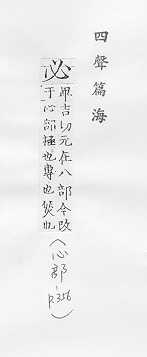 四聲篇海
必
畢吉切元在八部今改
于心部極也專也然也
(心部-p.356)